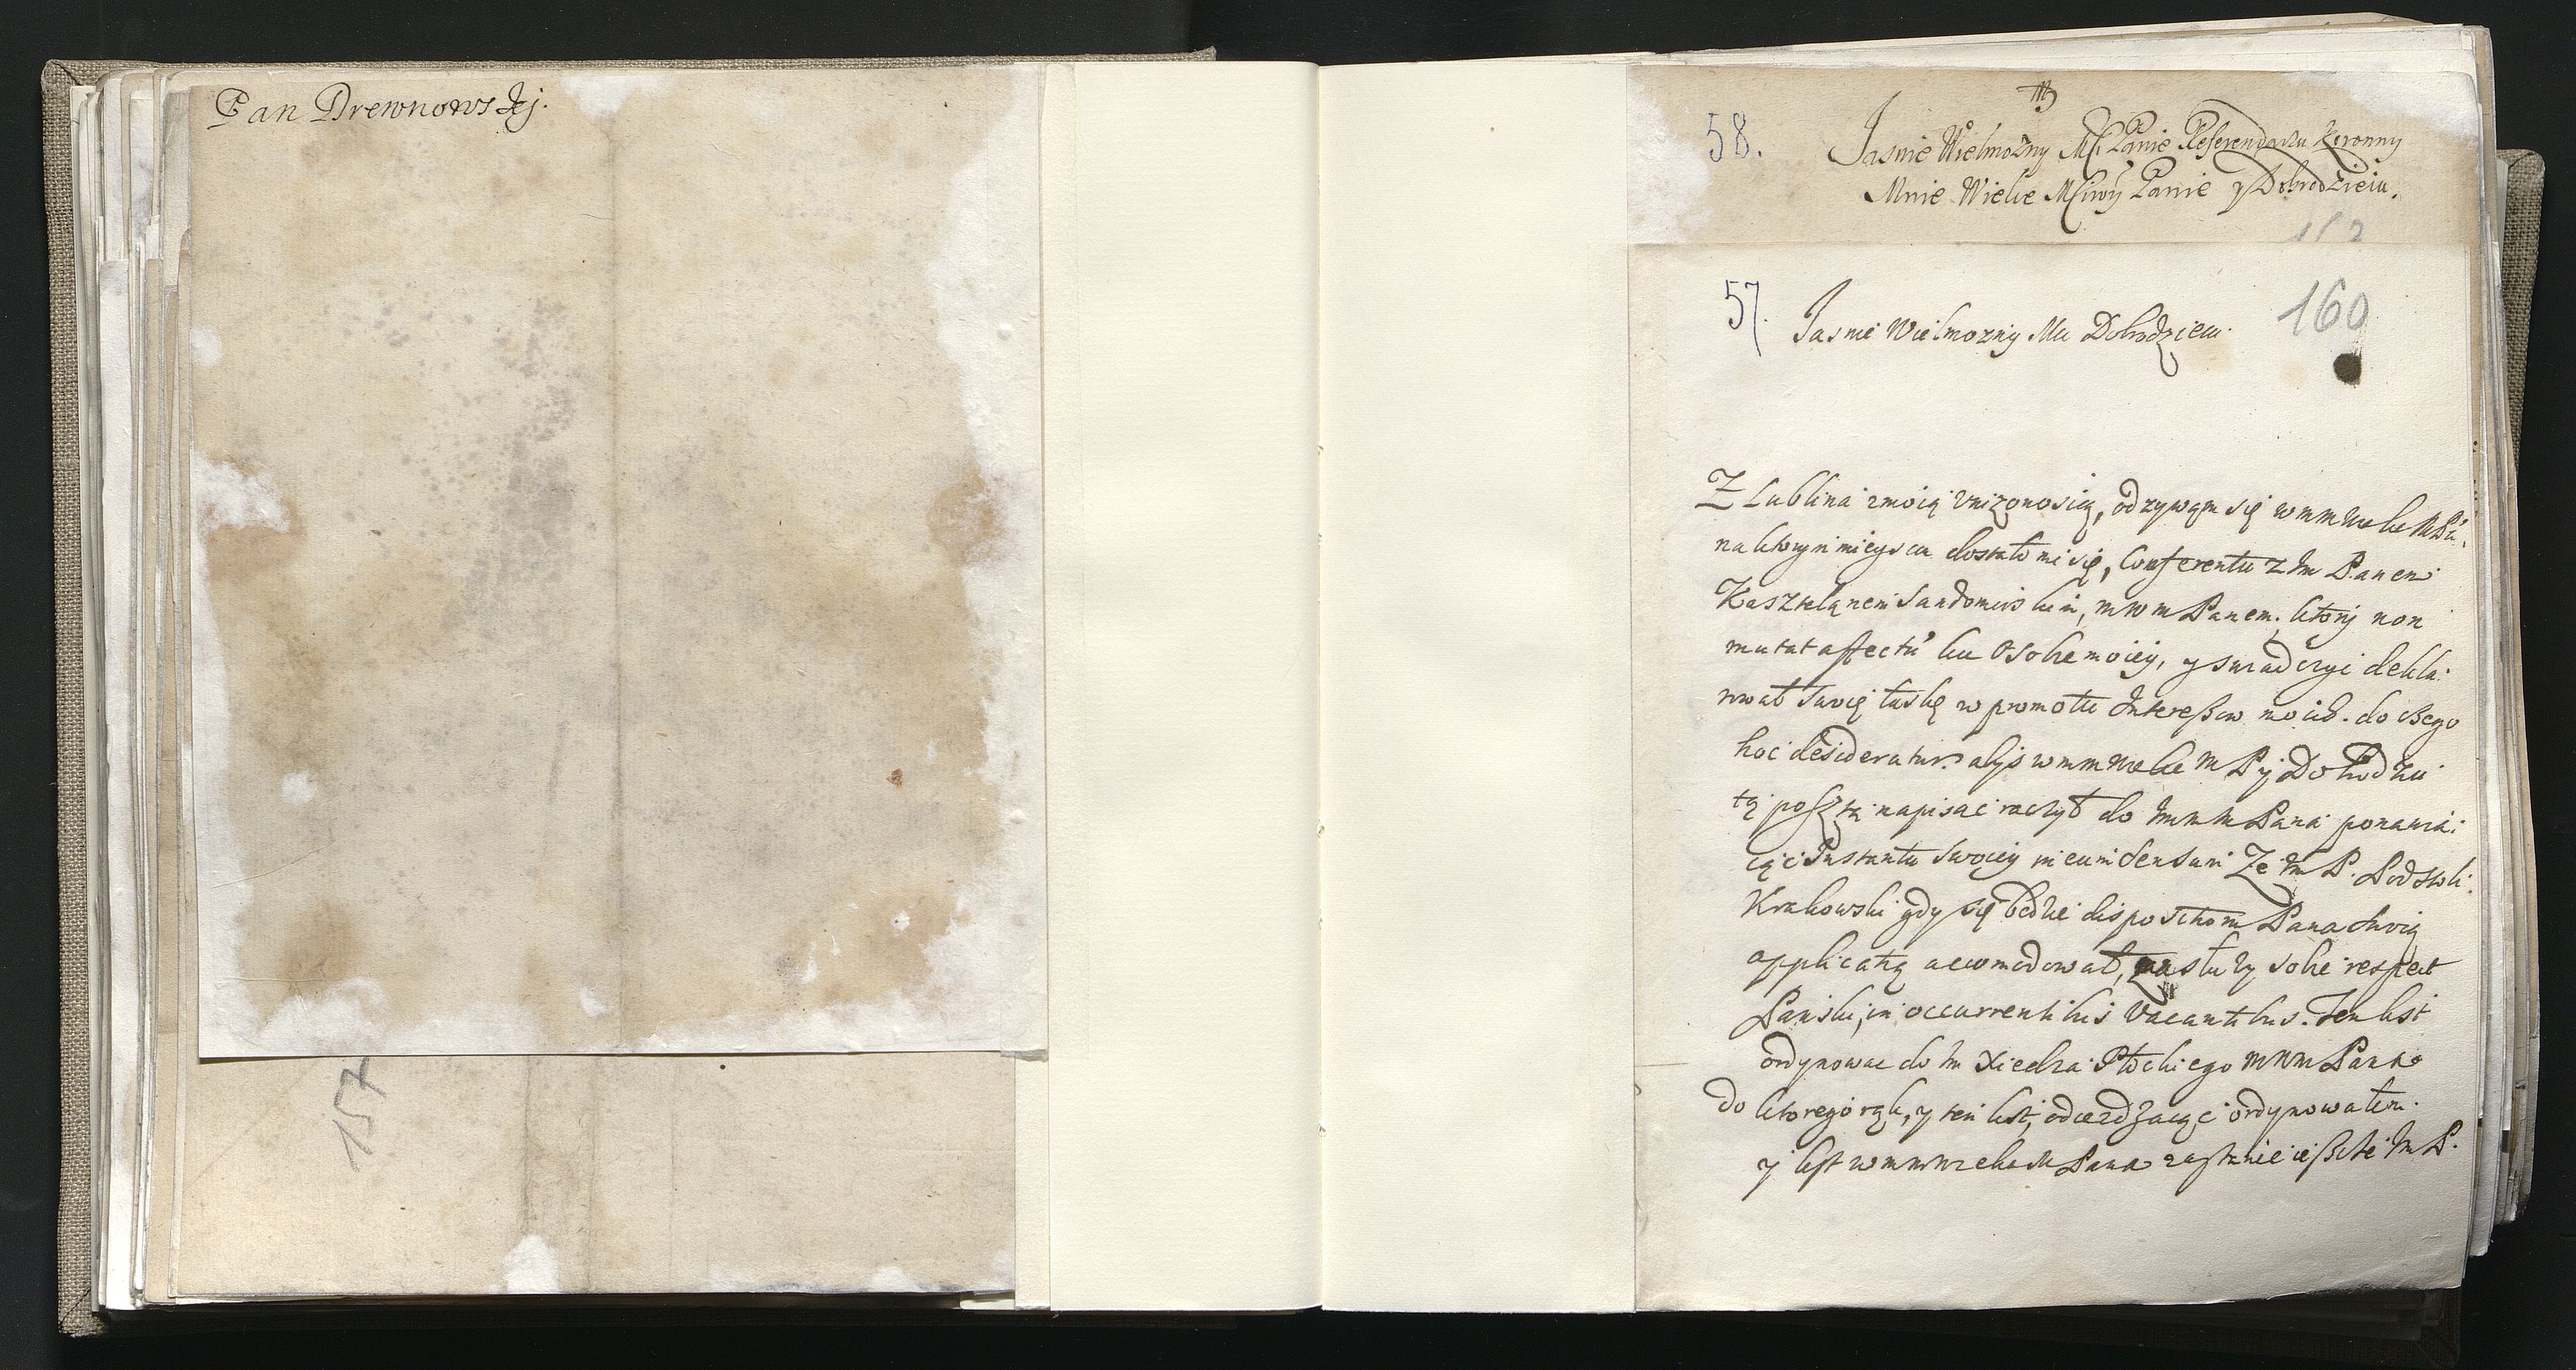 Pan Drewnowskj.
157
58.
Jasnie Wielmożny Mċi Panie Referendarzu Koronny
Mnie Wielce Mċiwÿ Panie y Dobrodzieiu.
57.
160
Jasnie Wielmozny Mci Dobrodzieiu.
Z Lublina z moią Vnizonoscią, odzywąm się
na ktoryṁ mieyscu dostało mi się, Conferentii z Im Panem
Kasztelanem Sandomirskim, mwm Panem. ktory non
mutat affectu ku Osobie moiey, y swiadczyć dekla-
rował swoię łaskę w promotii Interessow moich. do czego
hoc desideratur. abyś wmm wielce M P y Dobrodziei
tą posztą napisać raczył do Imm Pana ponawia-
iąc Instantii swoiey Ze Im P. Podstoli
Krakowski gdy się będzie Pana swoią
applicatią accomodował, zasłuzy sobie respect
Pański, in occurrentibus Vacantibus. Ten list
ordynowac do Im Xiedza Płockiego mwm Pana
do ktorego rąk, y ten list, odiezdzaiąc ordynowałem.
y list Pana zastanie ieszcze Im P.